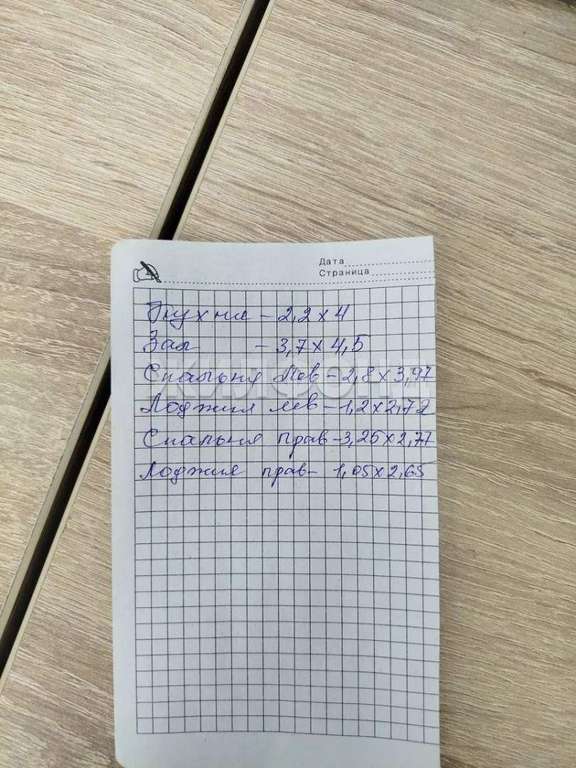 Дата
Страница
Кухня - 2,2х4
Зал - 3,7х4,5
Спальня лев - 2,8х3,97
Лоджия лев - 1,2х2,72
Спальня прав - 3,25х2,77
Лоджия прав - 1,05х2,65